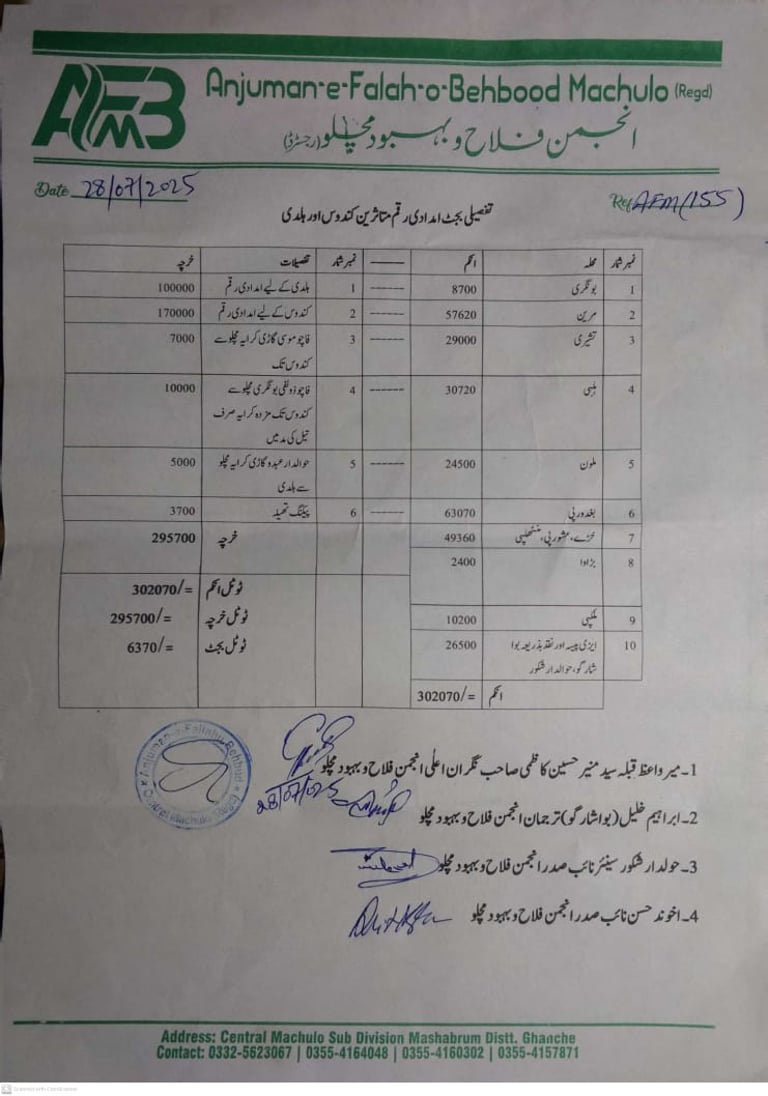 AFMB
Anjuman-e-Falah-o-Behbood Machulo (Regd)
انجمن فلاح و بہبود مچلو (رجسٹرڈ)
Date 28/07/2025
Ref AFM(155)
تفصیلی بجٹ امدادی رقم متاثرین کندوس اور ہلدی
نمبر شمار محلہ انکم ——— نمبر شمار تفصیلات خرچہ
1 بونگری 8700 ------ 1 ہلدی کے لیے امدادی رقم 100000
2 مرین 57620 ------ 2 کندوس کے لیے امدادی رقم 170000
3 تشری 29000 ------ 3 فاچو موسیٰ گاڑی کرایہ مچلو سے 7000
کندوس تک
4 30720 ------ 4 فاچو ذولفی بونگری مچلو سے 10000
کندوس تک مزدہ کرایہ صرف
تیل کی مد میں
5 ملون 24500 ------ 5 حوالدار عبدو گاڑی کرایہ مچلو 5000
سے ہلدی
6 63070 ------ 6 پیکنگ تھیلہ 3700
7 49360 خرچہ 295700
8 بڑاوا 2400
ٹوٹل انکم 302070/=
9 10200 ٹوٹل خرچہ 295700/=
10 ایزی پیسہ اور نقد بذریعہ بوا 26500 ٹوٹل بجٹ 6370/=
شارگو، حوالدار شکور
انکم 302070/=
1۔ میر واعظ قبلہ سید منیر حسین کاظمی صاحب نگران اعلٰی انجمن فلاح و بہبود مچلو
28/07/2025
2۔ ابراہیم خلیل (بوا شارگو) ترجمان انجمن فلاح و بہبود مچلو
3۔ حولدار شکور سینئر نائب صدر انجمن فلاح و بہبود مچلو
4۔ اخوند حسن نائب صدر انجمن فلاح و بہبود مچلو
Address: Central Machulo Sub Division Mashabrum Distt. Ghanche
Contact: 0332-5623067 | 0355-4164048 | 0355-4160302 | 0355-4157871
Scanned with CamScanner